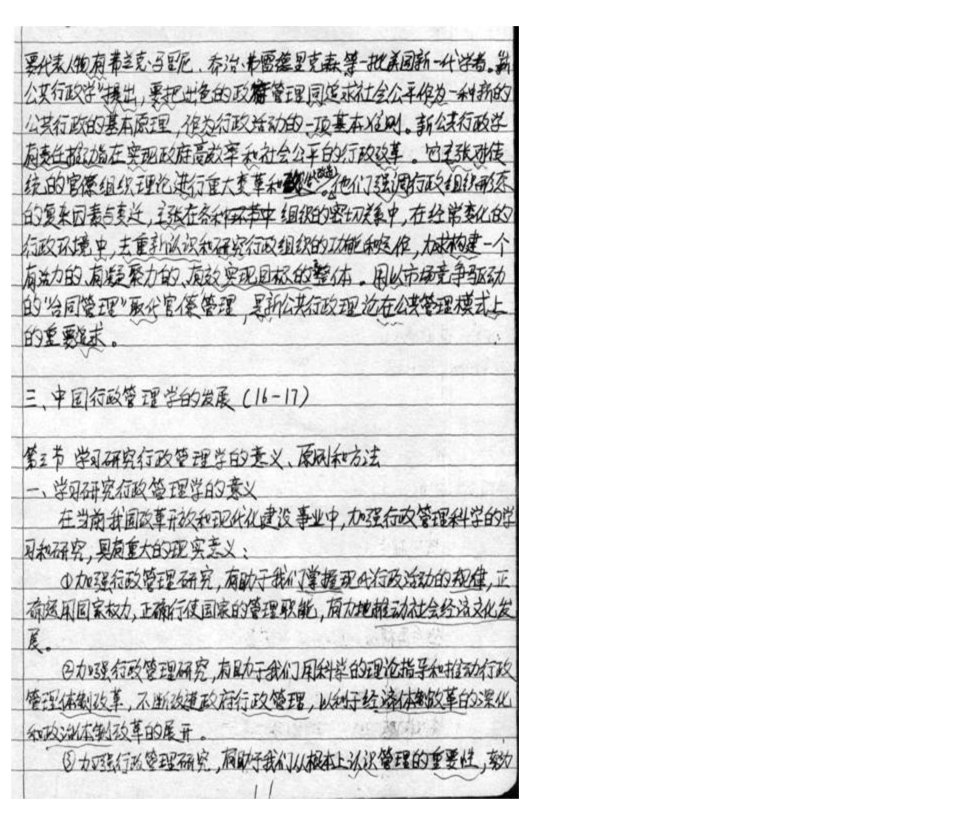 要代表人物有弗兰克·马里尼、乔治·弗雷德里克森等一批美国新一代学者。“新
公共行政学”提出，要把出色的政府管理同追求社会公平作为一种新的
公共行政的基本原理，作为行政活动的一项基本准则。新公共行政学
有责任推动旨在实现政府高效率和社会公平的行政改革。它主张对传
统的官僚组织理论进行重大变革和改造。他们强调行政组织形态
的复杂因素与变迁，主张在各种环节中组织的密切关系中，在经常变化的
行政环境中，去重新认识和研究行政组织的功能和运作，力求构建一个
有活力的、有凝聚力的、有效实现目标的整体。用以市场竞争驱动
的“合同管理”取代官僚管理，是新公共行政理论在公共管理模式上
的重要追求。
三、中国行政管理学的发展（16-17）
第三节 学习研究行政管理学的意义、原则和方法
一、学习研究行政管理学的意义
在当前我国改革开放和现代化建设事业中，加强行政管理科学的学
习和研究，具有重大的现实意义：
①加强行政管理研究，有助于我们掌握现代行政活动的规律，正
确运用国家权力，正确行使国家的管理职能，有力地推动社会经济文化发
展。
②加强行政管理研究，有助于我们用科学的理论指导和推动行政
管理体制改革，不断改进政府行政管理，以利于经济体制改革的深化
和政治体制改革的展开。
③加强行政管理研究，有助于我们从根本上认识管理的重要性，努力
11